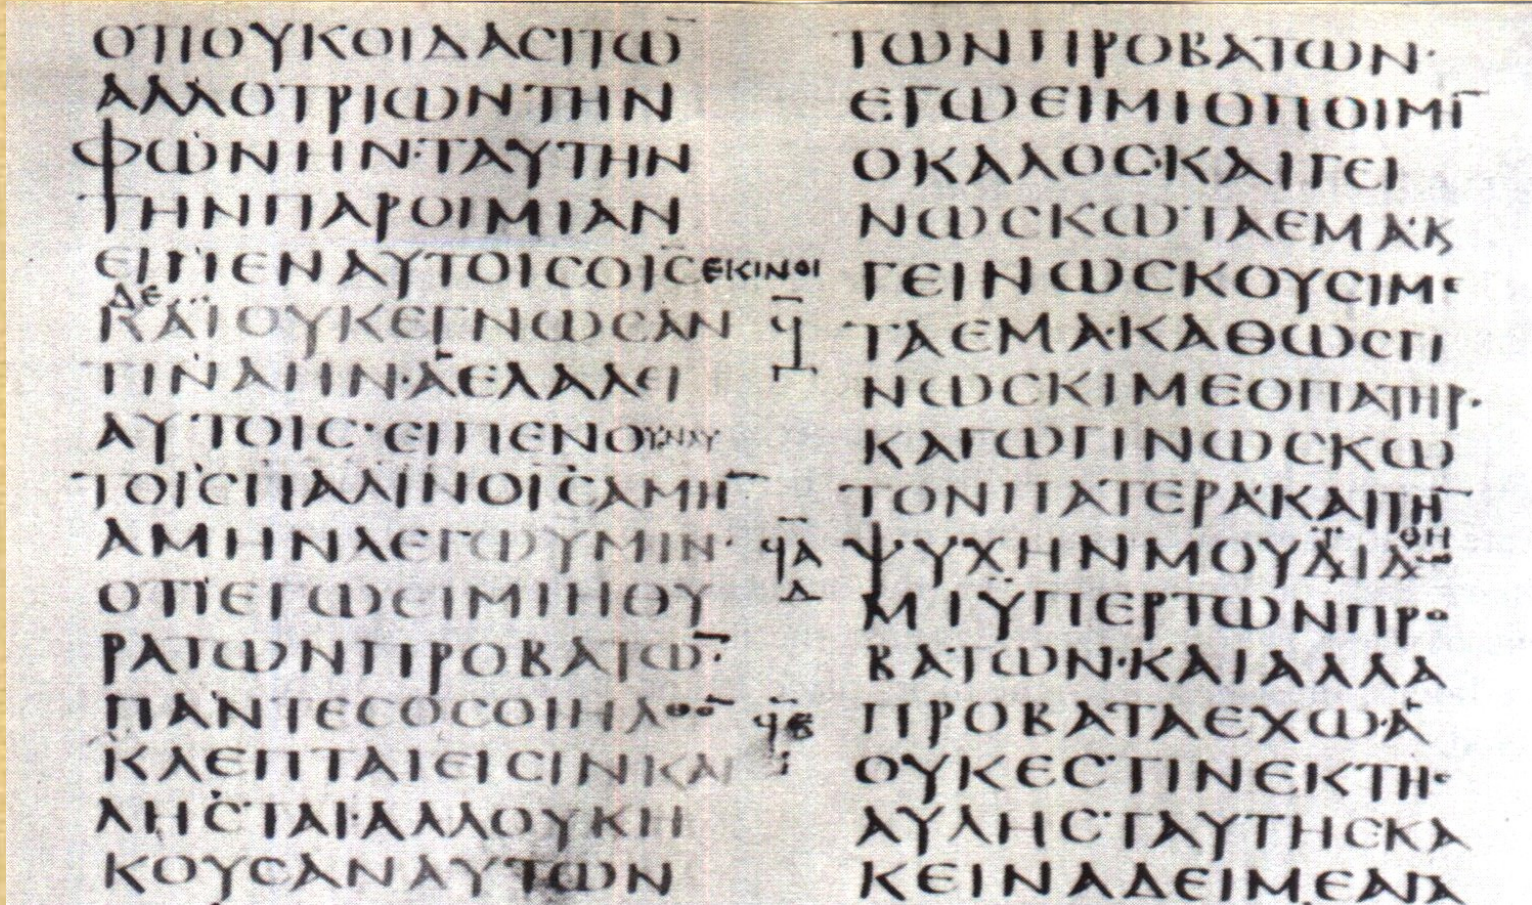 ΟΤΙΟΥΚΟΙΔΑCΙΤΩ̅
ΑΛΛΟΤΡΙΩΝΤΗΝ
ΦΩΝΗΝ·ΤΑΥΤΗΝ
ΤΗΝΠΑΡΟΙΜΙΑΝ
ΕΙΠΕΝΑΥΤΟΙCΟΙC ΕΚΙΝΟΙ
ΔΕ
ΚΑΙΟΥΚΕΓΝΩCΑΝ
ΤΙΝΑΗΝ·ΑΕΛΑΛΕΙ
ΑΥΤΟΙC·ΕΙΠΕΝΟΥΝΑΥ
ΤΟΙCΠΑΛΙΝΟΙCΑΜΗ̅
ΑΜΗΝΛΕΓΩΥΜΙΝ·
ΟΤΙΕΓΩΕΙΜΙΗΘΥ
ΡΑΤΩΝΠΡΟΒΑΤΩ̅·
ΠΑΝΤΕCΟCΟΙΗΛΘΟ̅
ΚΛΕΠΤΑΙΕΙCΙΝΚΑΙ
ΛΗCΤΑΙ·ΑΛΛΟΥΚΗ
ΚΟΥCΑΝΑΥΤΩΝ
Ϟ̅
Δ
Ϟ̅Α
Δ
Ϟ̅Β
ΤΩΝΠΡΟΒΑΤΩΝ·
ΕΓΩΕΙΜΙΟΠΟΙΜΗ̅
ΟΚΑΛΟC·ΚΑΙΓΕΙ
ΝΩCΚΩΤΑΕΜΑ·Κ
ΓΕΙΝΩCΚΟΥCΙΜΕ
ΤΑΕΜΑ·ΚΑΘΩCΓΙ
ΝΩCΚΙΜΕΟΠΑΤΗΡ·
ΚΑΓΩΓΙΝΩCΚΩ
ΤΟΝΠΑΤΕΡΑ·ΚΑΙΤΗ̅
Τ ΘΗ
ΨΥΧΗΝΜΟΥΔΙΔΩ
ΜΙΫΠΕΡΤΩΝΠΡΟ
ΒΑΤΩΝ·ΚΑΙΑΛΛΑ
ΠΡΟΒΑΤΑΕΧΩ·Α
ΟΥΚΕCΤΙΝΕΚΤΗC
ΑΥΛΗCΤΑΥΤΗCΚΑ
ΚΕΙΝΑΔΕΙΜΕΑΓΑ